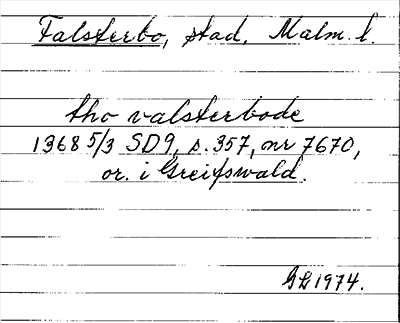 Falsterbo, stad, Malm. l.
tho valsterbode
1368 5/3 SD9, s. 357, nr 7670,
or. i Greifswald.
GL 1974.